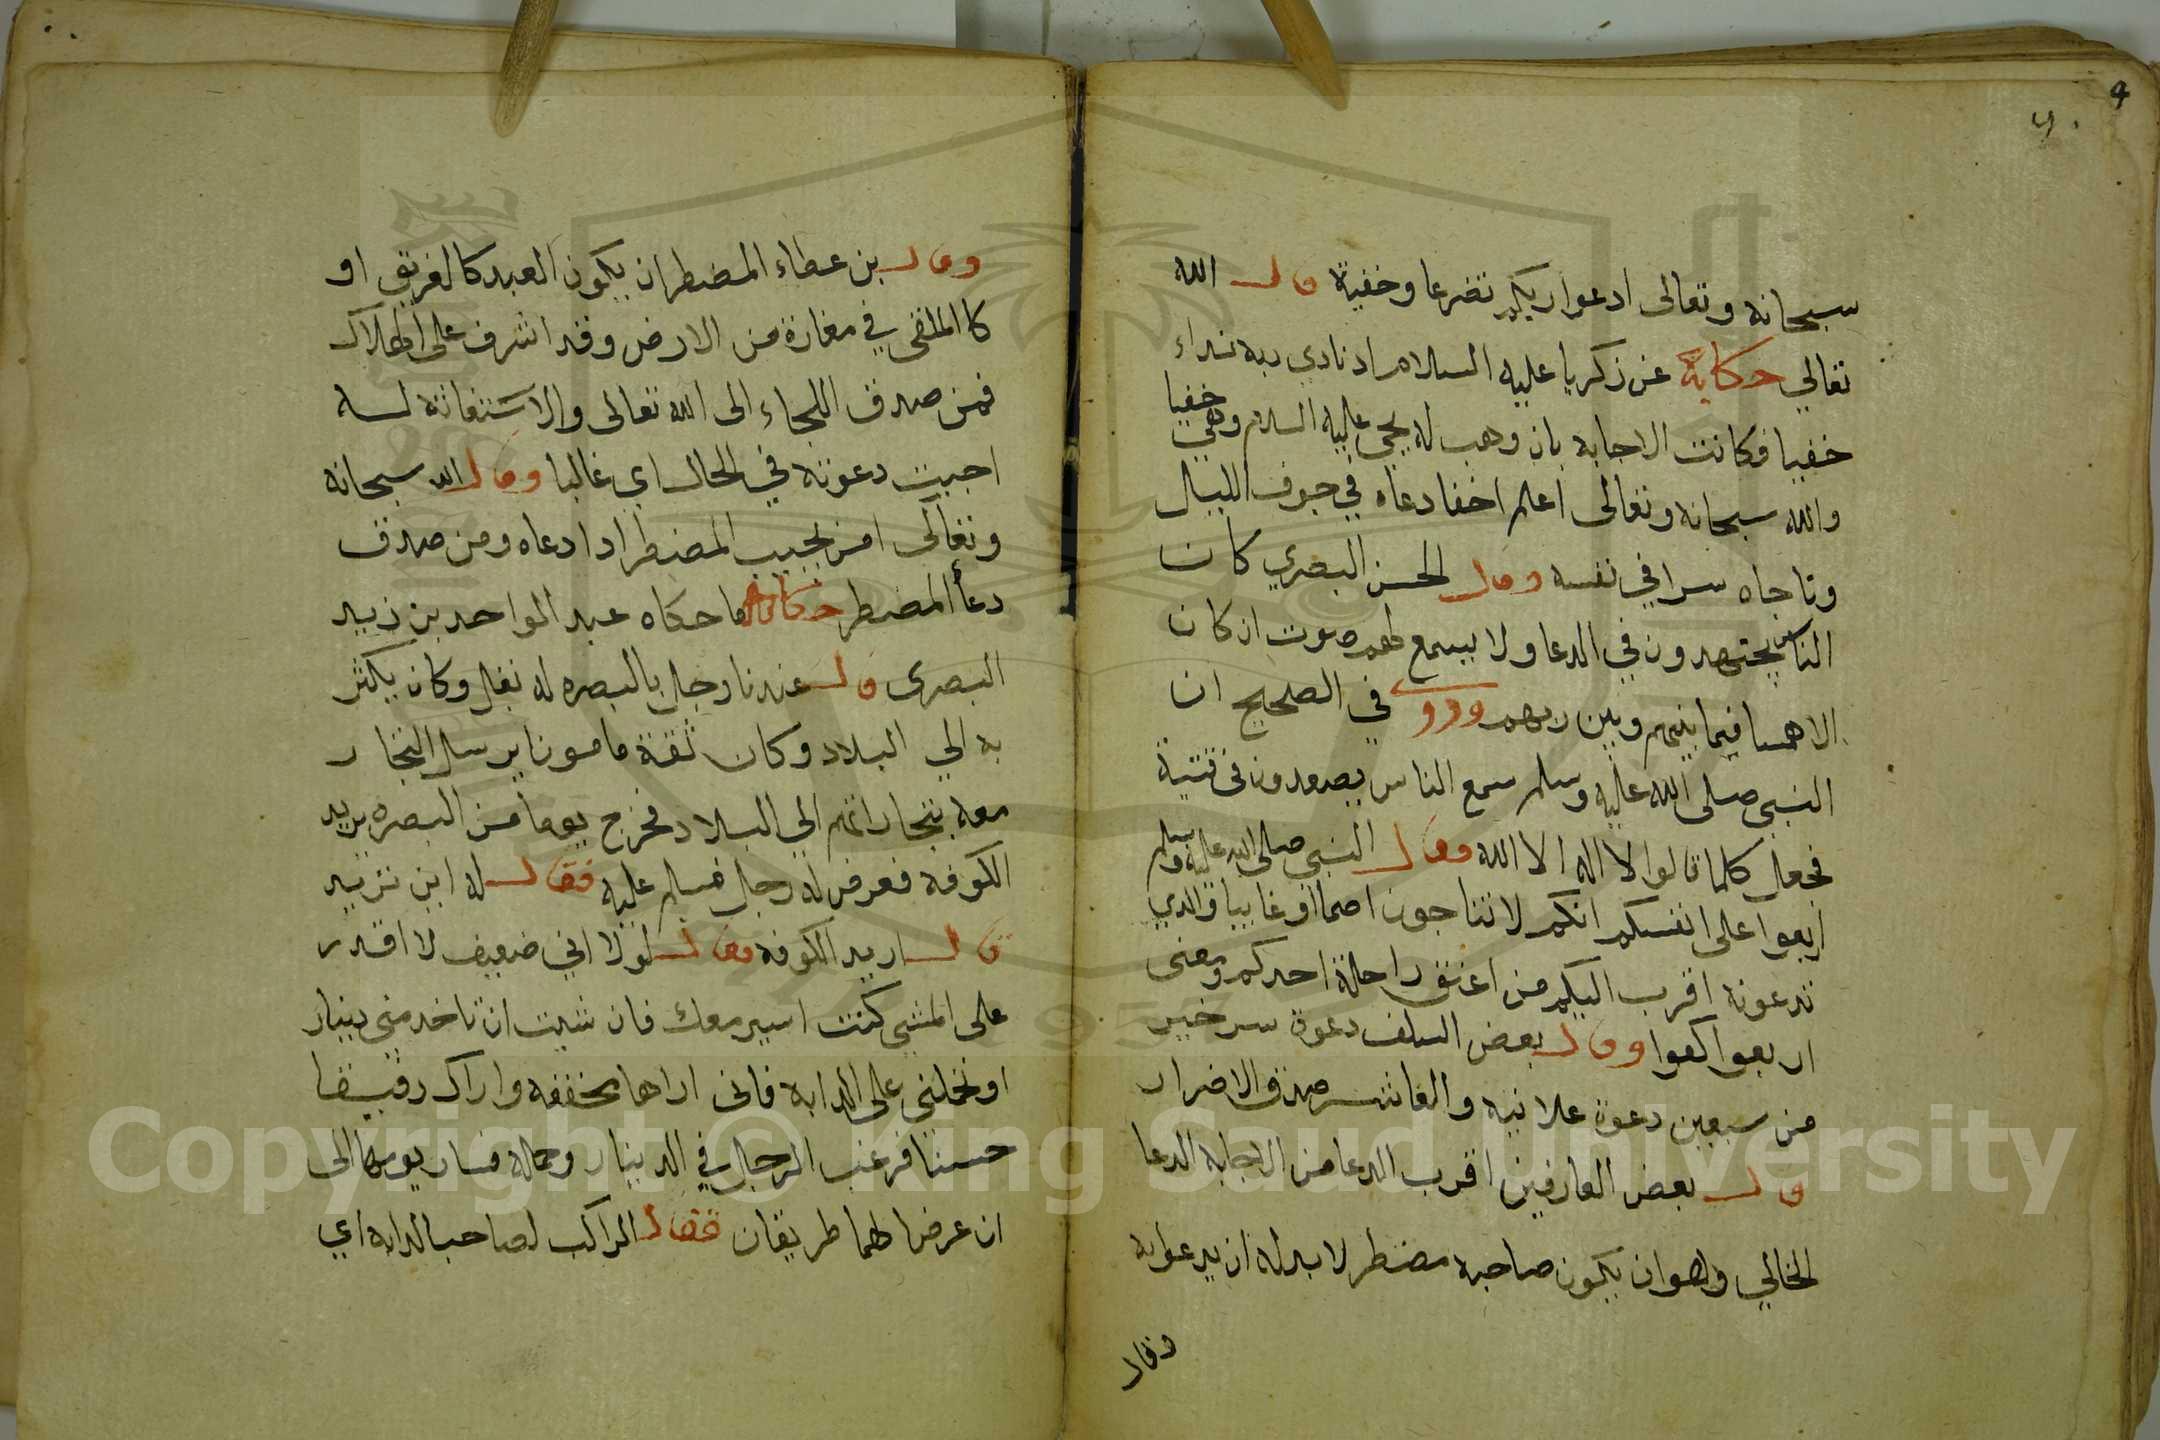 سبحانه وتعالى ادعوا ربكم تضرعا وخفية قال الله
تعالي حكاية عن زكريا عليه السلام اد نادي ربه نداء
خفيا فكانت الاجابة بان وهب له يحيى عليه السلام وهي خفيا
والله سبحانه وتعالى اعلم اخفا دعاه في جوف الليل
وناجاه سرا في نفسه وقال الحسن البصري كان
الناس يجتهدون في الدعا ولا يسمع لهم صوت ان كان
الا همسا فيما بينهم وبين ربهم وروي في الصحيح ان
النبي صلى الله عليه وسلم سمع الناس يصعدون في ثنية
فجعل كلما قالوا لا اله الا الله وقال النبي صلى الله عليه وسلم
اربعوا على انفسكم انكم لا تناجون اصما او غايبا والذي
تدعونه اقرب اليكم من اعنق راحلة احدكم ومعنى
اربعوا اكفوا وقال بعض السلف دعوة سر خير
من سبعين دعوة علانية والعاشر صدق الاضرار
قال بعض العارفين اقرب الدعا من الاجابة الدعا
الخالي وهو ان يكون صاحبه مضطر لا بد له ان يدعوا به
وقال
وقال بن عطاء المضطر ان يكون العبد كالغريق او
كا الملقى في مغازة من الارض وقد اشرف على الهلاك
فمن صدق اللجاء الى الله تعالى والاستغاثة له
اجيبت دعوته في الحال اي غالبا وقال الله سبحانه
وتعالى امن يجيب المضطر ادا دعاه ومن صدق
دعأ المضطر حكاية ما حكاه عبد الواحد بن زييد
البصرى قال عندنا رجل بالبصره له نغل وكان يكثر
به الي البلاد وكان ثقة مامونا يرسل التجار
معه بتجاراتهم الي البلاد فخرج يوما من البصره يريد
الكوفه فعرض له رجل فسلم عليه فقال له اين تريد
قال اريد الكوفه فقال لولا اني ضعيف لا اقدر
على المشي كنت اسير معك فان شيت ان تاخد مني دينار
او تحملني على الدابه فانى اراها مخففه واراك رفيقا
حسنا فرغب الرجل في الدينار وحمله فسار يومه الى
ان عرضا لهما طريقان فقال الراكب لصاحب الدابه اي
Copyright © King Saud University